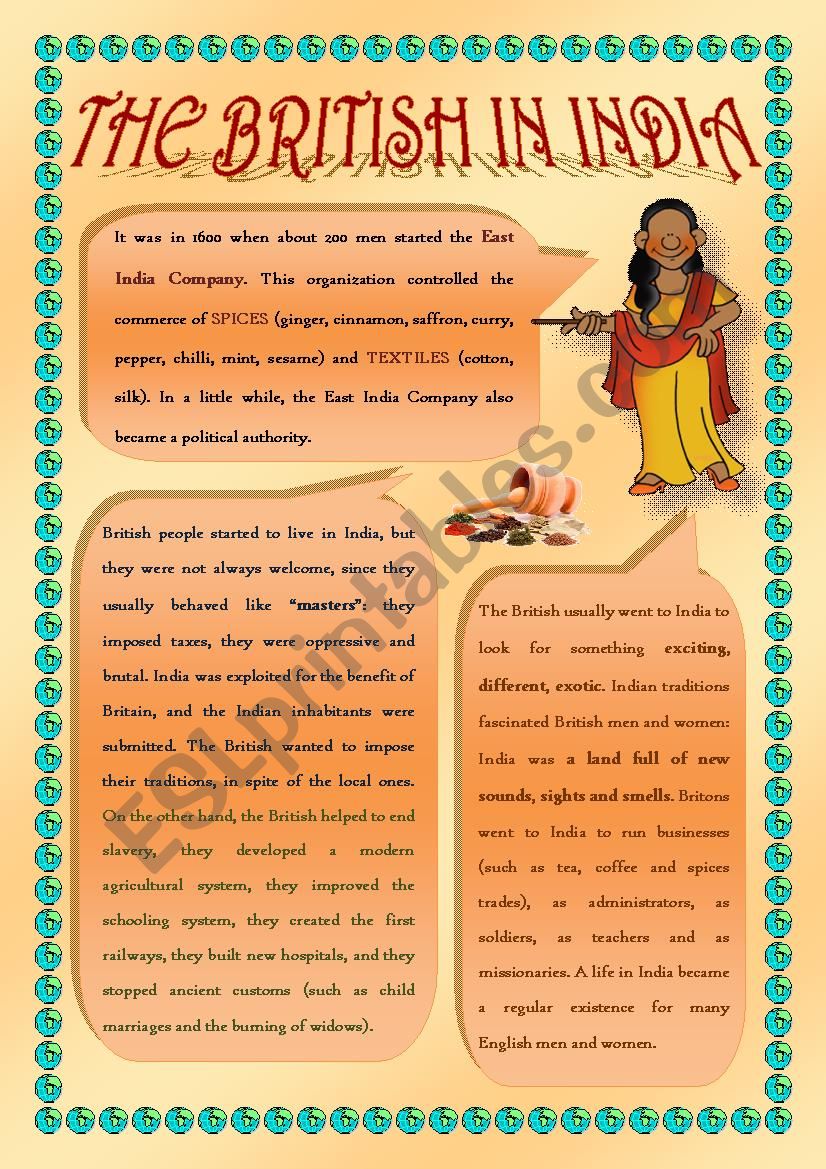 THE BRITISH IN INDIA
It was in 1600 when about 200 men started the East
India Company. This organization controlled the
commerce of SPICES (ginger, cinnamon, saffron, curry,
pepper, chilli, mint, sesame) and TEXTILES (cotton,
silk). In a little while, the East India Company also
became a political authority.
British people started to live in India, but
they were not always welcome, since they
usually behaved like “masters”: they
imposed taxes, they were oppressive and
brutal. India was exploited for the benefit of
Britain, and the Indian inhabitants were
submitted. The British wanted to impose
their traditions, in spite of the local ones.
On the other hand, the British helped to end
slavery, they developed a modern
agricultural system, they improved the
schooling system, they created the first
railways, they built new hospitals, and they
stopped ancient customs (such as child
marriages and the burning of widows).
The British usually went to India to
look for something exciting,
different, exotic. Indian traditions
fascinated British men and women:
India was a land full of new
sounds, sights and smells. Britons
went to India to run businesses
(such as tea, coffee and spices
trades), as administrators, as
soldiers, as teachers and as
missionaries. A life in India became
a regular existence for many
English men and women.
ESLprintables.com